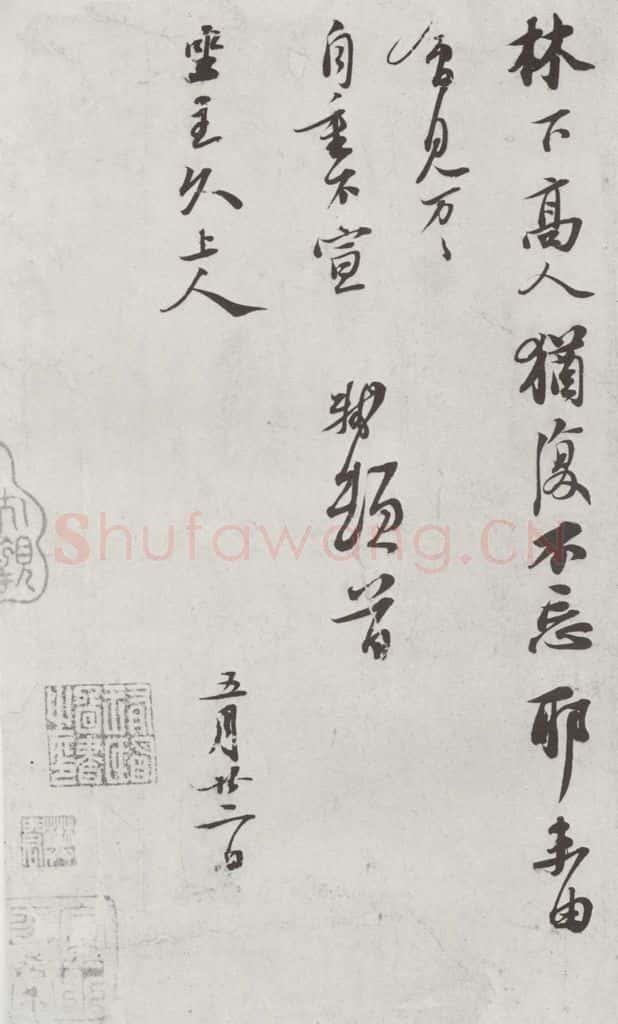 林下高人猶復不忘耶未由
會見万〻
自重不宣 軾頓首
坐主久上人
五月廿二日
Shufawang.CN